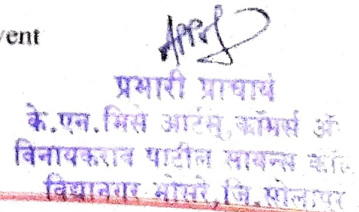 vent
प्रभारी प्राचार्य
के.एन.भिसे आर्टस्,कॉमर्स अॅ
विनायकराव पाटील सायन्स कॉले
विद्यानगर भोसरे,जि.सोलापूर